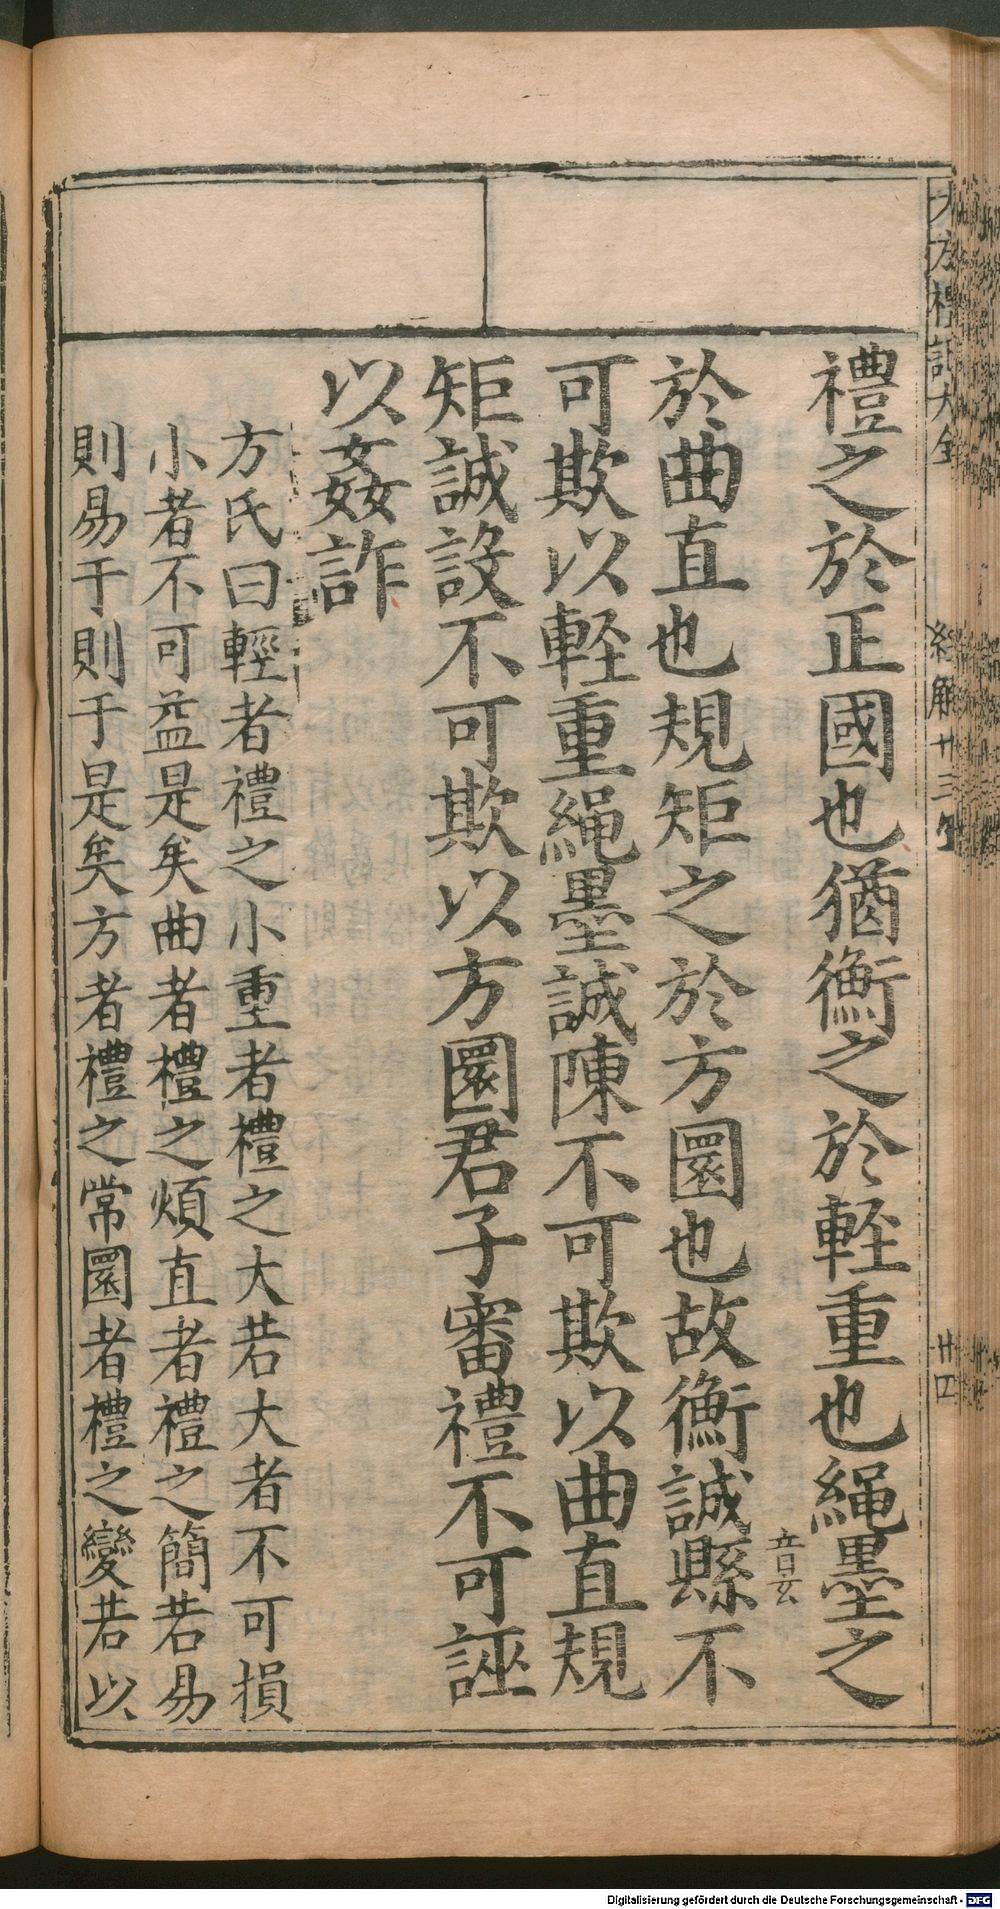 禮之於正國也猶衡之於輕重也繩墨之
於曲直也規矩之於方圜也故衡誠縣不
音玄
可欺以輕重繩墨誠陳不可欺以曲直規
矩誠設不可欺以方圜君子審禮不可誣
以姦詐
方氏曰輕者禮之小重者禮之大若大者不可損
小者不可益是矣曲者禮之煩直者禮之簡若易
則易于則于是矣方者禮之常圜者禮之變若以
禮記大全
經解廿三
廿四
Digitalisierung gefördert durch die Deutsche Forschungsgemeinschaft - DFG